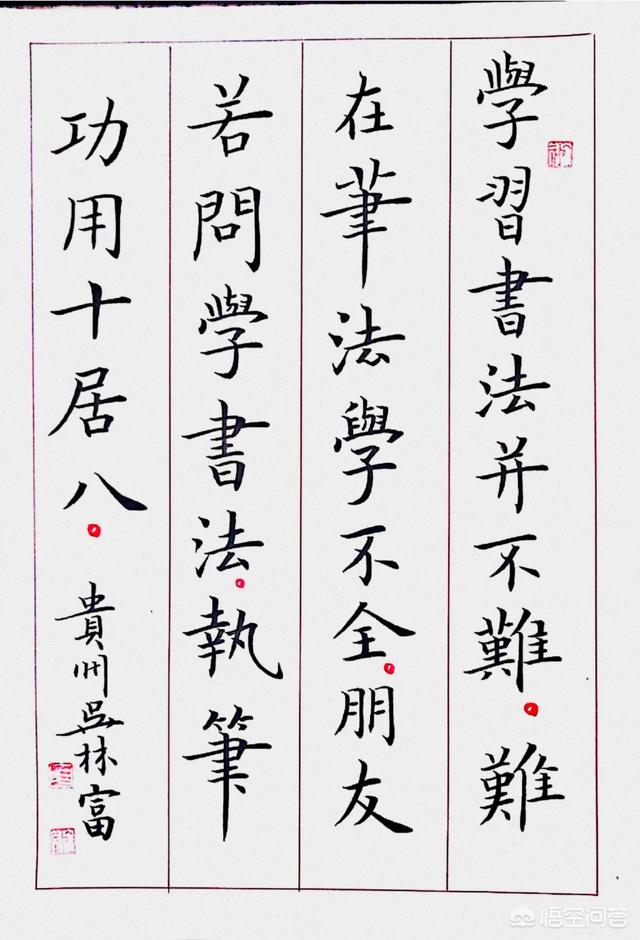 學習書法并不難。難
在筆法學不全。朋友
若問學書法。執筆
功用十居八。
貴州吳林富
悟空问答